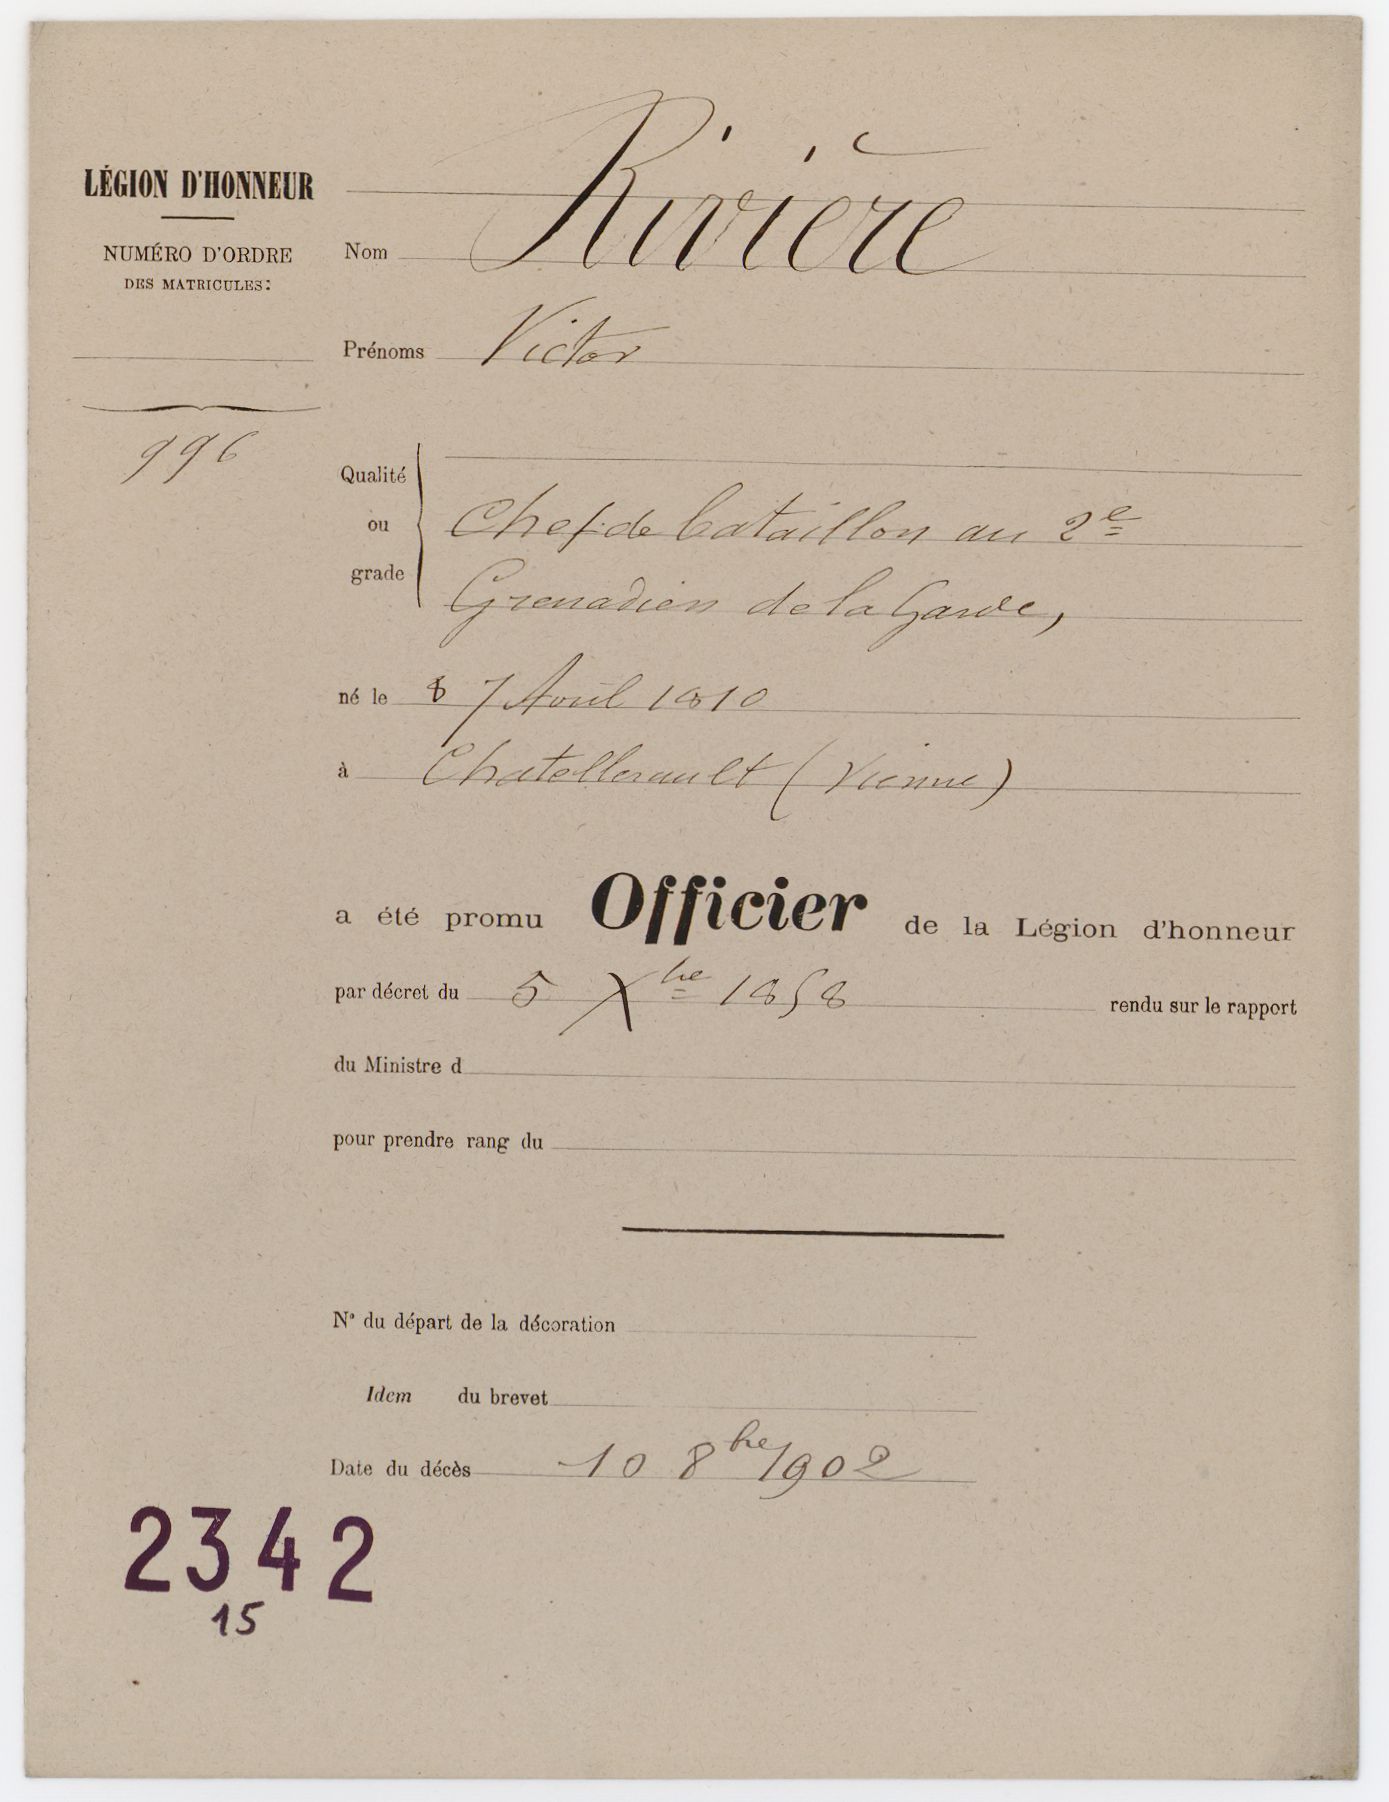 LÉGION D'HONNEUR
NUMÉRO D'ORDRE
DES MATRICULES:
996
Nom Rivière
Prénoms Victor
Qualité ou grade
Chef de bataillon au 2e
Grenadiers de la Garde,
né le 8 7 Avril 1810
à Chatellerault (Vienne)
a été promu Officier de la Légion d'honneur
par décret du 5 Xbre 1858 rendu sur le rapport
du Ministre d
pour prendre rang du
N° du départ de la décoration
Idem du brevet
Date du décès 10 8bre 1902
2342
15